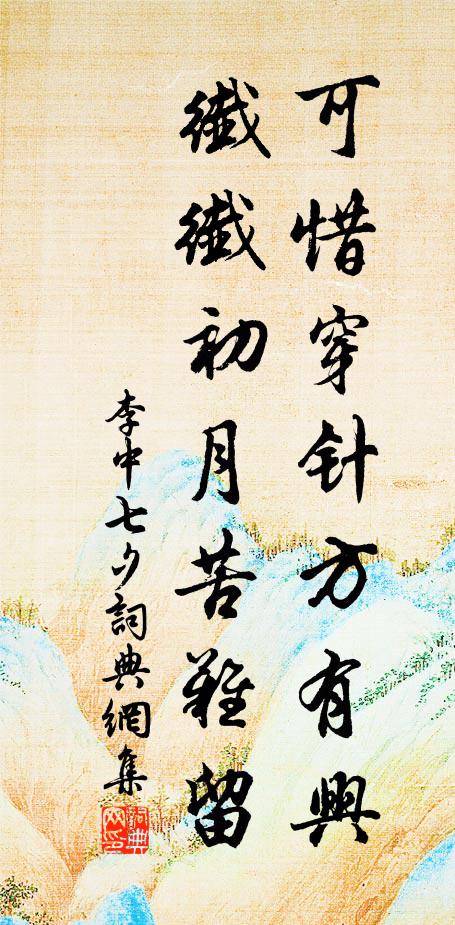 可惜穿针方有興
纖纖初月苦難留
李中七夕詞典網集
詞典網印